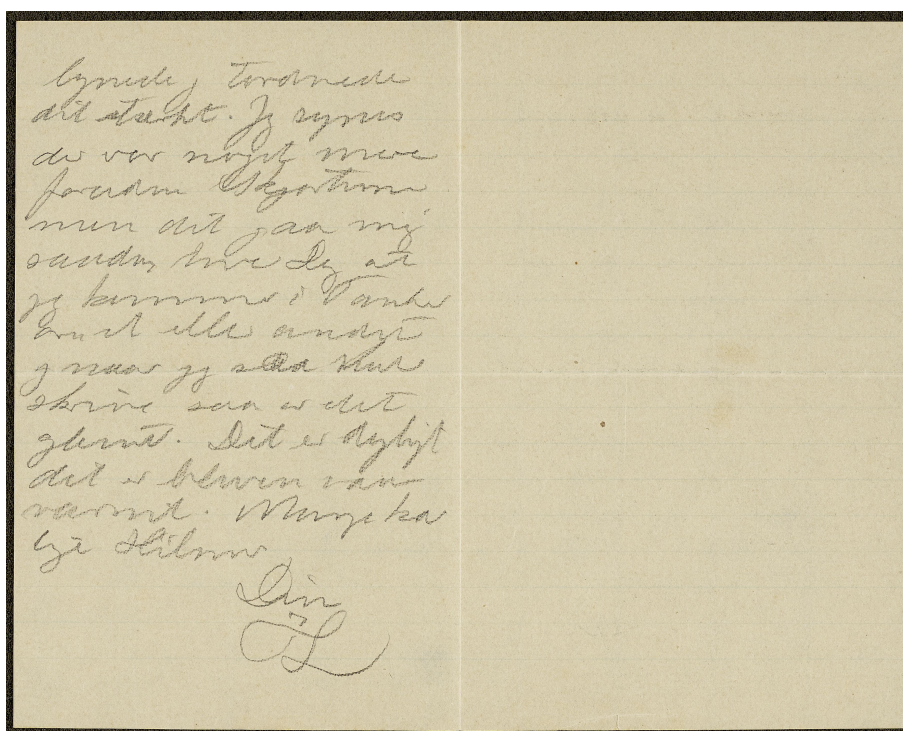 lynede, tordnede
det stærkt. Jeg synes
der var noget mere
foruden Skjorterne
men det gaar mig
saadan lille Dig at
jeg kommer i Tanke
om et eller andet
og naar jeg saa skal
skrive saa er det
glemt. Det er dejligt
det er bleven saa
varmt. Mange kær
lige Hilsner
Din
JL